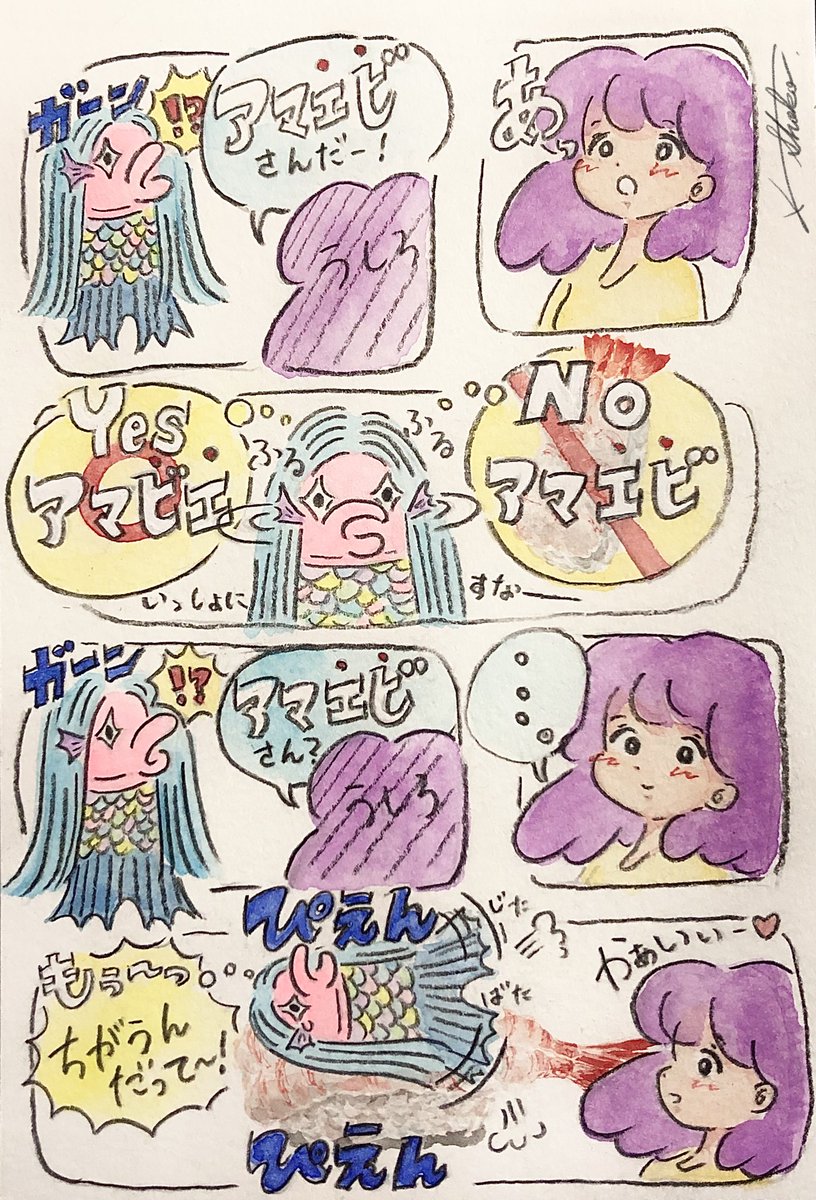 あっ
アマエビ
さんだー!
うしろ
ガーン
!?
No
アマエビ
ふる
ふる
Yes
アマビエ
すなー
いっしょに
・・・
アマエビ
さん?
うしろ
ガーン
!?
かぁいいー♥
ぴえん
じた
ばた
もぅーっ
ちがうん
だって〜!
ぴえん